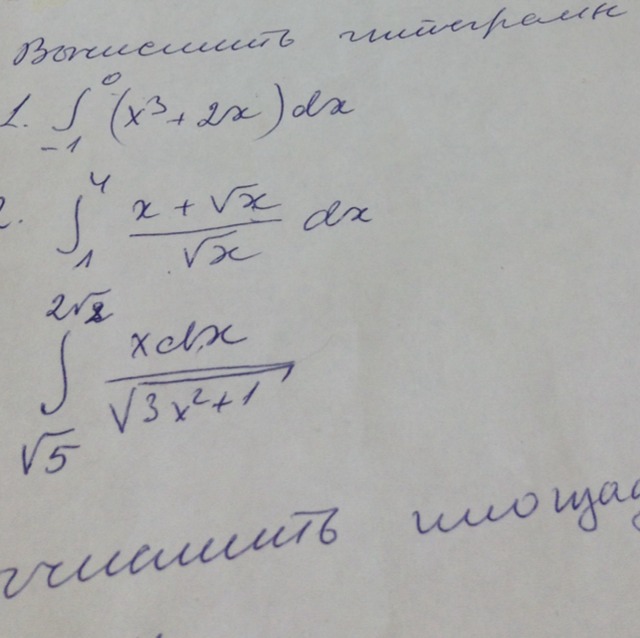 Вычислить интегралы
1. ∫₋₁⁰ (x³ + 2x) dx
2. ∫₁⁴ (x + √x)/√x dx
∫_{√5}^{2√2} xdx/√(3x²+1)
числить площад